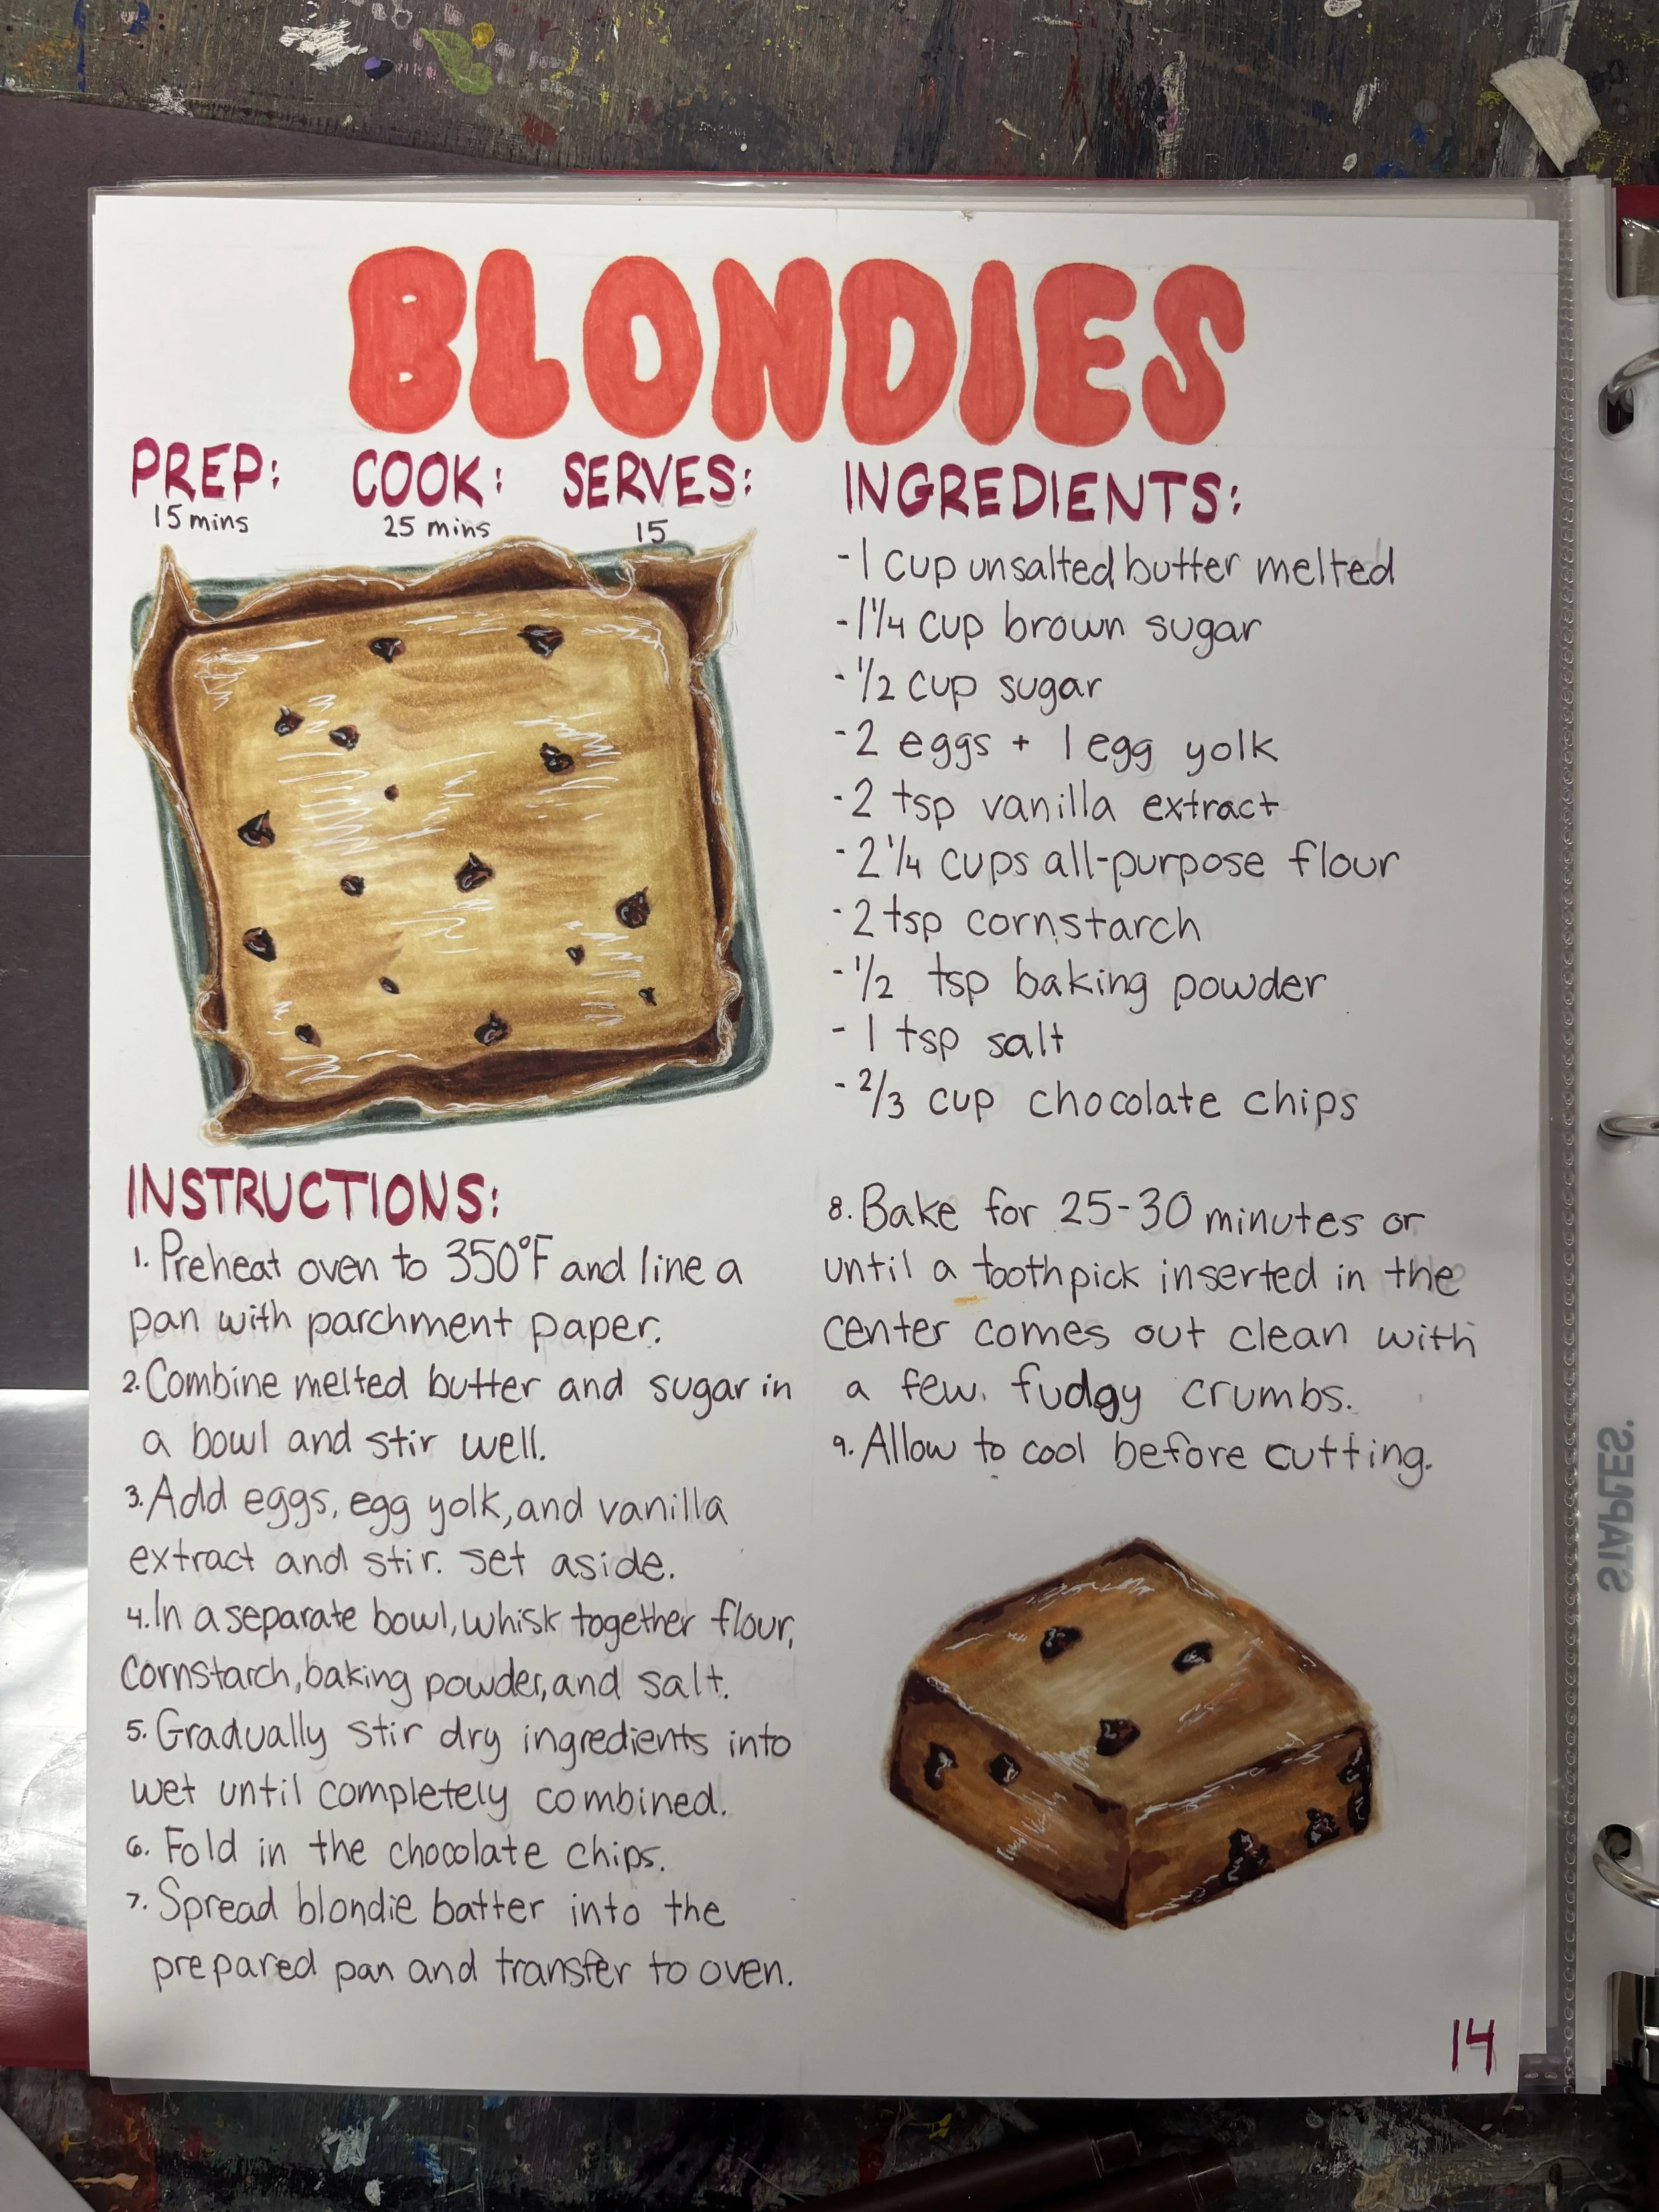 BLONDIES
PREP:
15 mins
COOK:
25 mins
SERVES:
15
INGREDIENTS:
-1 cup unsalted butter melted
-1 1/4 cup brown sugar
-1/2 cup sugar
-2 eggs + 1 egg yolk
-2 tsp vanilla extract
-2 1/4 cups all-purpose flour
-2 tsp cornstarch
-1/2 tsp baking powder
-1 tsp salt
-2/3 cup chocolate chips
INSTRUCTIONS:
1. Preheat oven to 350°F and line a
pan with parchment paper.
2. Combine melted butter and sugar in
a bowl and stir well.
3. Add eggs, egg yolk, and vanilla
extract and stir. set aside.
4. In a separate bowl, whisk together flour,
cornstarch, baking powder, and salt.
5. Gradually stir dry ingredients into
wet until completely combined.
6. Fold in the chocolate chips.
7. Spread blondie batter into the
prepared pan and transfer to oven.
8. Bake for 25-30 minutes or
until a toothpick inserted in the
center comes out clean with
a few. fudgy crumbs.
9. Allow to cool before cutting.
14
STAPLES